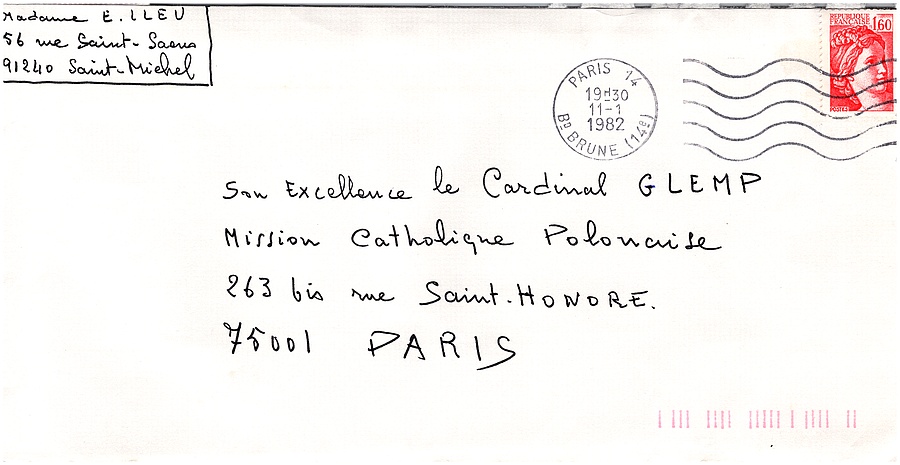 Madame E. ILEU
56 rue Saint-Saens
91240 Saint-Michel
REPUBLIQUE FRANÇAISE 1,60
POSTES
PARIS 14
19H30
11-1
1982
BD BRUNE (14E)
Son Excellence le Cardinal GLEMP
Mission Catholique Polonaise
263 bis rue Saint-HONORE.
75001 PARIS